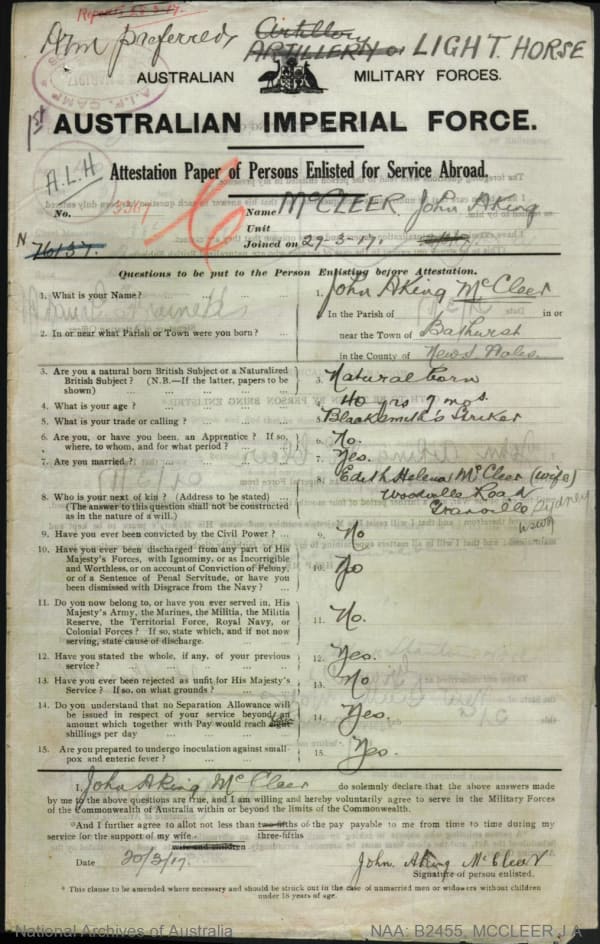 Reported 28.3.17.
Arm preferred Artillery
ARTILLERY or LIGHT HORSE
AUSTRALIAN MILITARY FORCES.
A.I.F. CAMP
1st AUSTRALIAN IMPERIAL FORCE.
A.L.H Attestation Paper of Persons Enlisted for Service Abroad.
No. 3367 Name McCLEER John Aking
Unit
N 76137. Joined on 29-3-17.
Questions to be put to the Person Enlisting before Attestation.
1. What is your Name? ... 1. John Aking McCleer
2. In or near what Parish or Town were you born? ... In the Parish of in or
near the Town of Bathurst
in the County of New S Wales.
3. Are you a natural born British Subject or a Naturalized
British Subject? (N.B.—If the latter, papers to be
shown) 3. Natural born
4. What is your age? 4. 40 yrs 7 mos.
5. What is your trade or calling? 5. Blacksmith's Striker
6. Are you, or have you been, an Apprentice? If so,
where, to whom, and for what period? 6. No.
7. Are you married? 7. Yes.
8. Who is your next of kin? (Address to be stated)
(The answer to this question shall not be construed
as in the nature of a will.) 8. Edith Helena McCleer (wife)
Woodville Road
Granville Sydney
NSW
9. Have you ever been convicted by the Civil Power? 9. No
10. Have you ever been discharged from any part of His
Majesty's Forces, with Ignominy, or as Incorrigible
and Worthless, or on account of Conviction of Felony,
or of a Sentence of Penal Servitude, or have you
been dismissed with Disgrace from the Navy? 10. No
11. Do you now belong to, or have you ever served in, His
Majesty's Army, the Marines, the Militia, the Militia
Reserve, the Territorial Force, Royal Navy, or
Colonial Forces? If so, state which, and if not now
serving, state cause of discharge. 11. No.
12. Have you stated the whole, if any, of your previous
service? 12. Yes.
13. Have you ever been rejected as unfit for His Majesty's
Service? If so, on what grounds? 13. No
14. Do you understand that no Separation Allowance will
be issued in respect of your service beyond an
amount which together with Pay would reach eight
shillings per day 14. Yes.
15. Are you prepared to undergo inoculation against small-
pox and enteric fever? 15. Yes.
I, John Aking McCleer do solemnly declare that the above answers made
by me to the above questions are true, and I am willing and hereby voluntarily agree to serve in the Military Forces
of the Commonwealth of Australia within or beyond the limits of the Commonwealth.
*And I further agree to allot not less than two-fifths of the pay payable to me from time to time during my
three-fifths
service for the support of my wife.
wife and children
Date 30/3/17. John Aking McCleer
Signature of person enlisted.
* This clause to be amended where necessary and should be struck out in the case of unmarried men or widowers without children
under 18 years of age.
National Archives of Australia NAA: B2455, MCCLEER J A